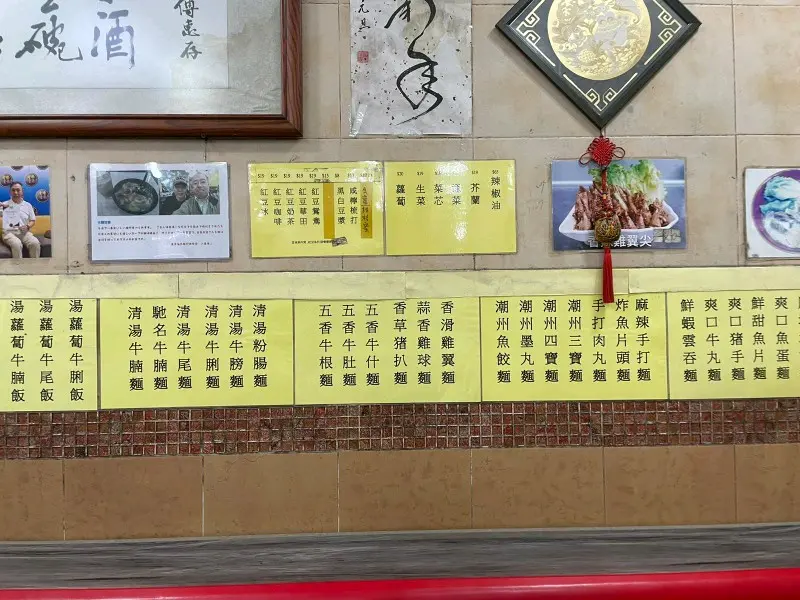 酒
碗
辣椒油
芥蘭
菜芯
生菜
蘿蔔
咸檸梳打
黑白豆漿
紅豆鴛鴦
紅豆華田
紅豆奶茶
紅豆咖啡
紅豆冰
雞翼尖
爽口魚蛋麵
鮮甜魚片麵
爽口猪手麵
爽口牛丸麵
鮮蝦雲吞麵
麻辣手打麵
炸魚片頭麵
手打肉丸麵
潮州三寶麵
潮州四寶麵
潮州墨丸麵
潮州魚餃麵
香滑雞翼麵
蒜香雞球麵
香草猪扒麵
五香牛什麵
五香牛肚麵
五香牛根麵
清湯粉腸麵
清湯牛膀麵
清湯牛脷麵
清湯牛尾麵
馳名牛腩麵
清湯牛腩麵
湯蘿蔔牛脷飯
湯蘿蔔牛尾飯
湯蘿蔔牛腩飯